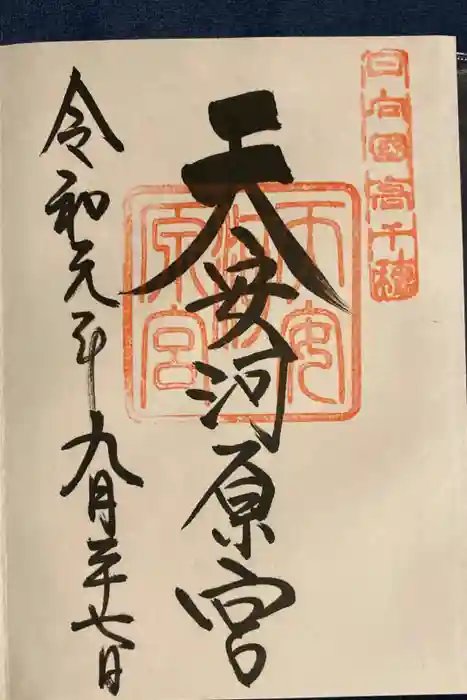 日向國高千穂
天安河原宮
天安河原宮
令和元年九月二十七日